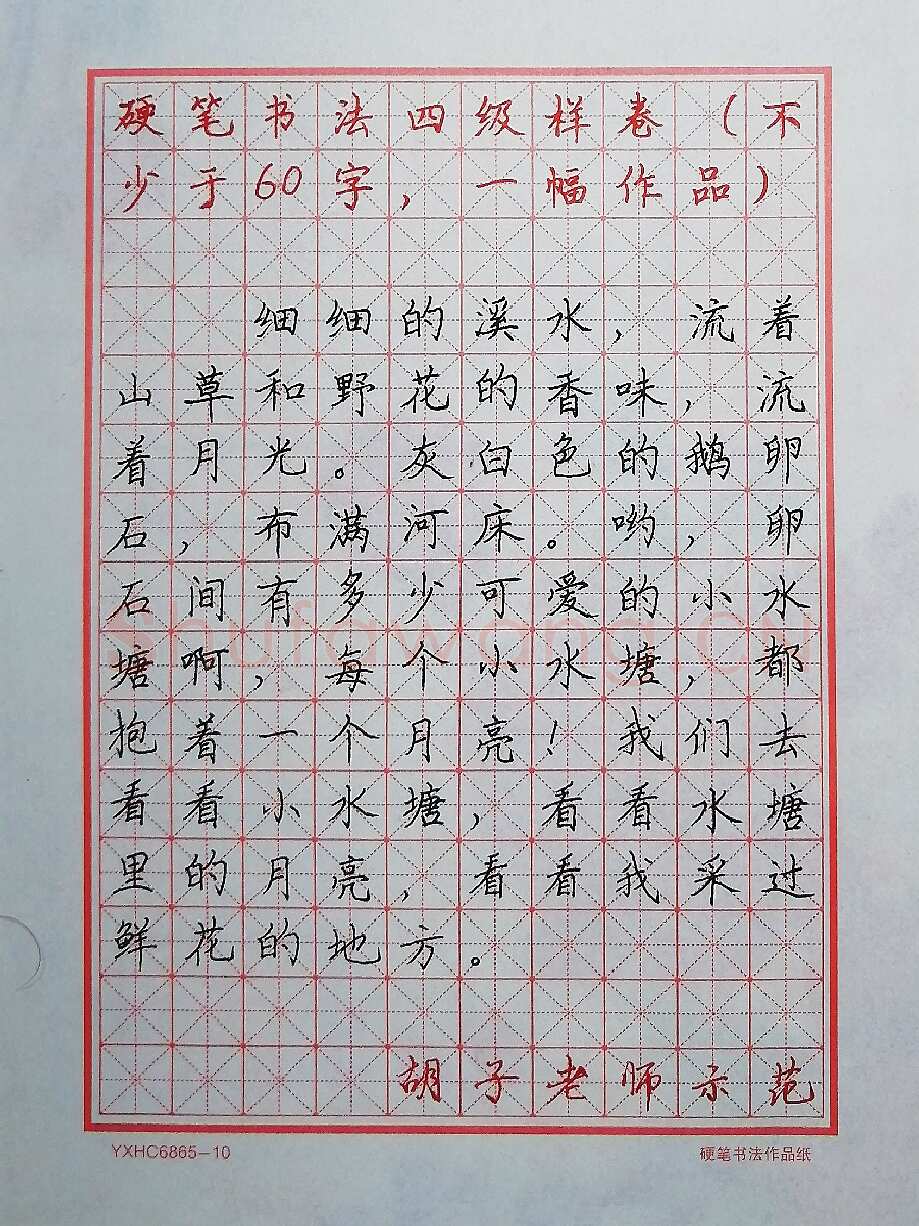 硬笔书法四级样卷（不
少于60字，一幅作品）
细细的溪水，流着
山草和野花的香味，流
着月光。灰白色的鹅卵
石，布满河床。哟，卵
石间有多少可爱的小水
塘啊，每个小水塘，都
抱着一个月亮！我们去
看看小水塘，看看水塘
里的月亮，看看我采过
鲜花的地方。
胡子老师示范
YXHC6865-10
硬笔书法作品纸